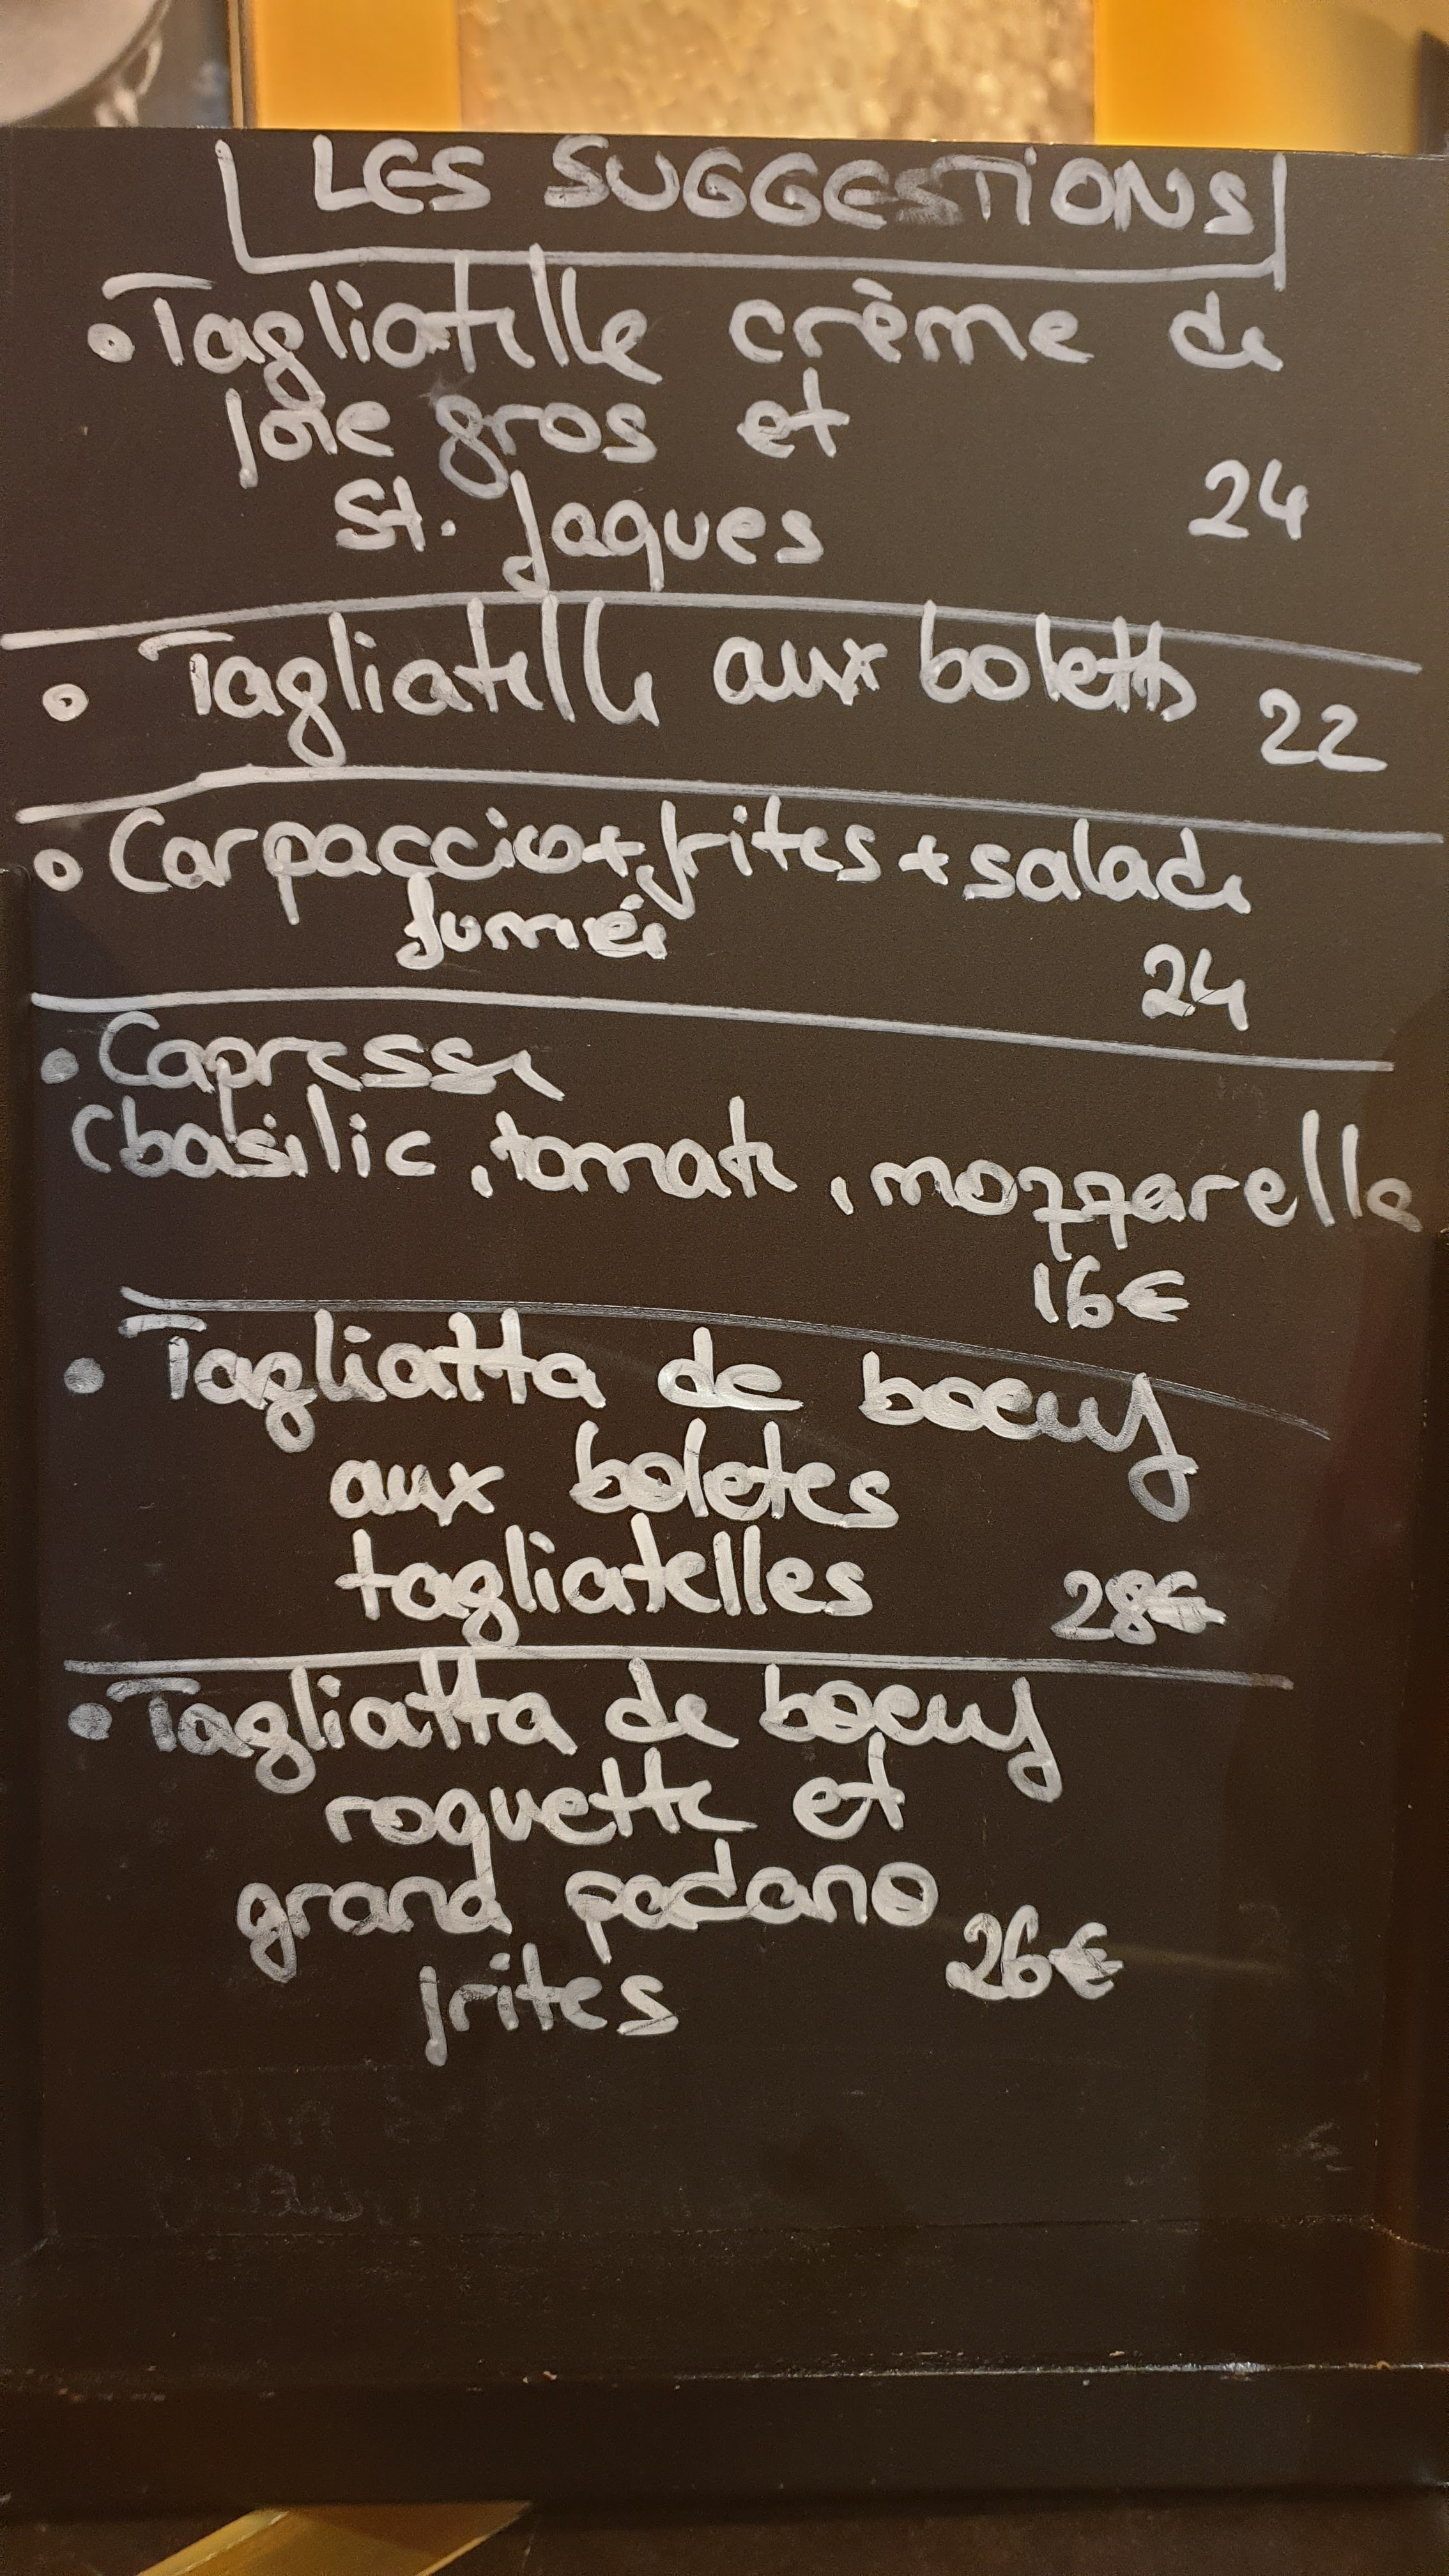 LES SUGGESTIONS
• Tagliatelle crème de
foie gros et
St. Jaques 24
• Tagliatelle aux boletts 22
• Carpaccio + frites + salade
fumée
24
• Capresse
(basilic, tomate, mozzarella
16€
• Tagliatta de boeuf
aux boletes
tagliatelles 28€
• Tagliatta de boeuf
roquette et
grand padano
frites 26€